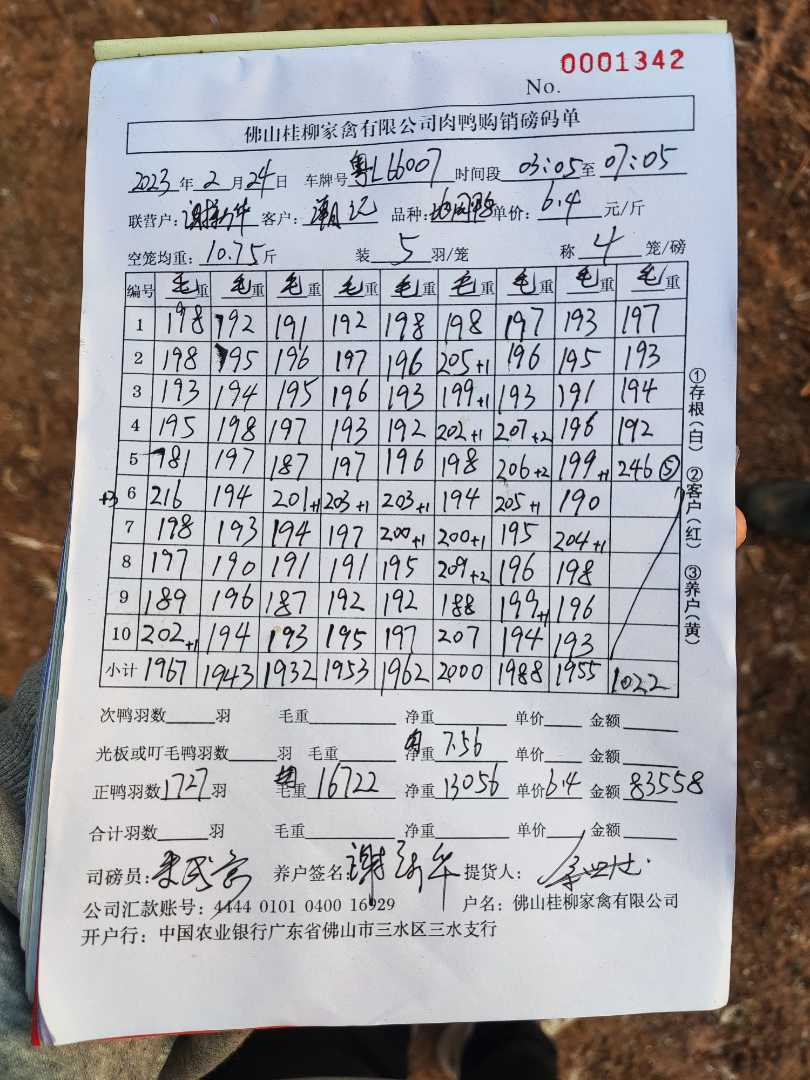 0001342
No.
佛山桂柳家禽有限公司肉鸭购销磅码单
2023年2月24日 车牌号 粤L66007 时间段 03:05至07:05
联营户:谢新华 客户:潮记 品种: 单价:6.4元/斤
空笼均重:10.75斤 装5羽/笼 称4笼/磅
编号 毛重 毛重 毛重 毛重 毛重 毛重 毛重 毛重 毛重
1 198 192 191 192 198 198 197 193 197
2 198 195 196 197 196 205+1 196 195 193
3 193 194 195 196 193 199+1 193 191 194
4 195 198 197 193 192 202+1 207+2 196 192
5 181 197 187 197 196 198 206+2 199+1 246⑤
+3 6 216 194 201+1 203+1 203+1 194 205+1 190
7 198 193 194 197 200+1 200+1 195 204+1
8 197 190 191 191 195 209+2 196 198
9 189 196 187 192 192 188 199+1 196
10 202+1 194 193 195 197 207 194 193
小计 1967 1943 1932 1953 1962 2000 1988 1955 1022
①存根(白) ②客户(红) ③养户(黄)
次鸭羽数 羽 毛重 净重 单价 金额
光板或叮毛鸭羽数 羽 毛重 重 7.56 单价 金额
正鸭羽数1727羽 重 16722 净重13056 单价6.4 金额83558
合计羽数 羽 毛重 净重 单价 金额
司磅员: 养户签名:谢新华 提货人:
公司汇款账号:4444 0101 0400 16929 户名:佛山桂柳家禽有限公司
开户行:中国农业银行广东省佛山市三水区三水支行